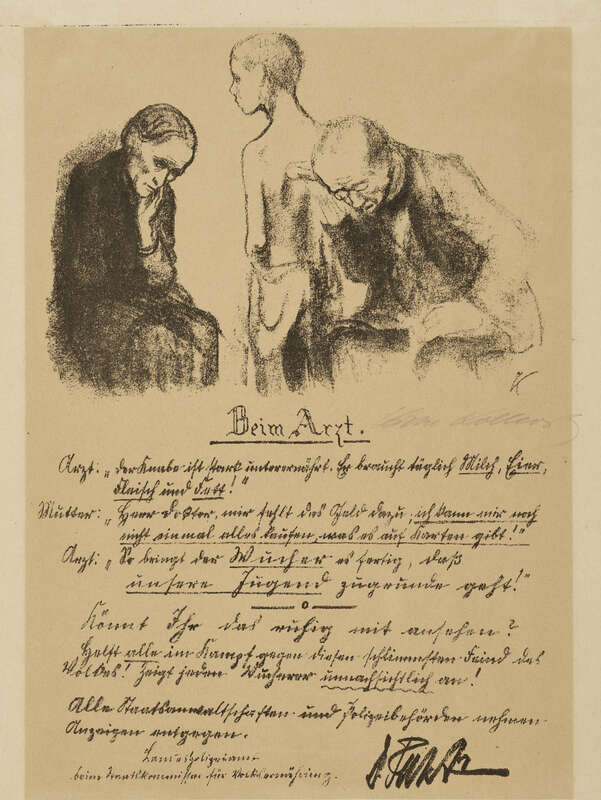 Beim Arzt.
Arzt: „Der Knabe ist stark unterernährt. Er braucht täglich Milch, Eier,
Fleisch und Fett!“
Mutter: „Herr Doktor, mir fehlt das Geld dazu, ich kann mir noch
nicht einmal alles kaufen, was es auf Karten gibt!“
Arzt: „So bringt der Wucher es fertig, daß
unsere Jugend zugrunde geht!“
Könnt Ihr das ruhig mit ansehen?
Helft alle im Kampf gegen diesen schlimmsten Feind des
Volkes! Zeigt jeden Wucherer unnachsichtlich an!
Alle Staatsanwaltschaften und Polizeibehörden nehmen
Anzeigen entgegen.
Landespolizeiamt
beim Staatskommissar für Volksernährung.